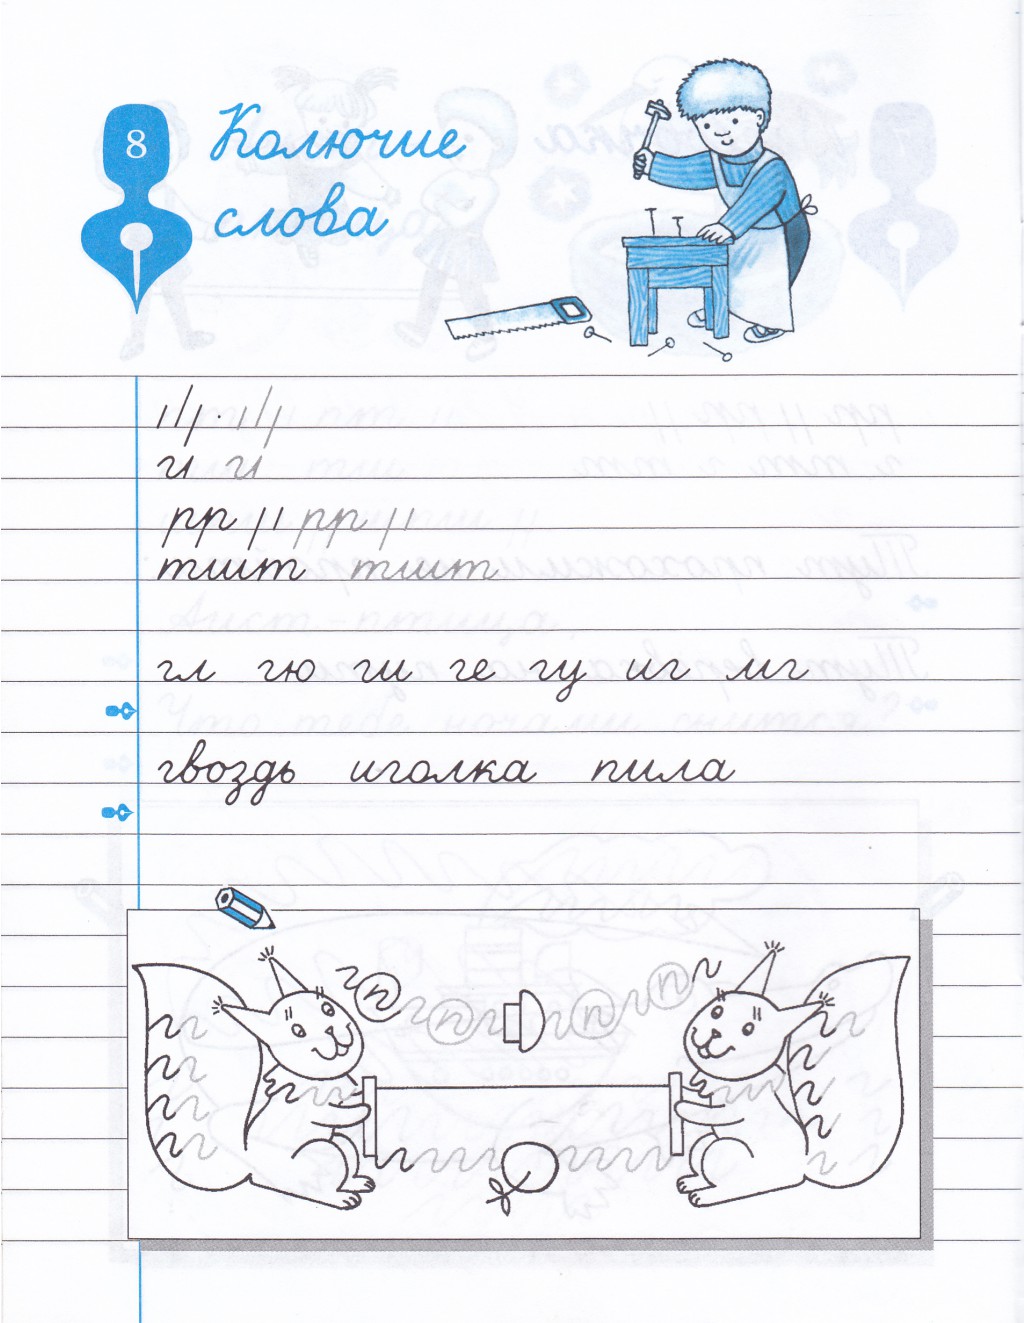 8
Колючие
слова
рр рр
тшт тшт
гл гю ги ге гу иг мг
гвоздь иголка пила